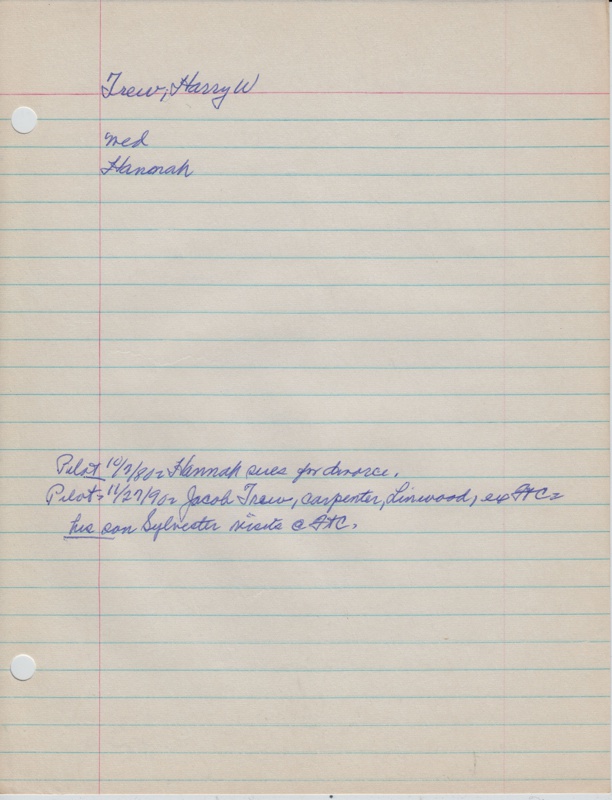 Trew, Harry W
med
Hannah
Pilot 10/7/80= Hannah sues for divorce.
Pilot= 11/27/90= Jacob Trew, carpenter, Linwood, ex HC=
his son Sylvester visits @ HC.